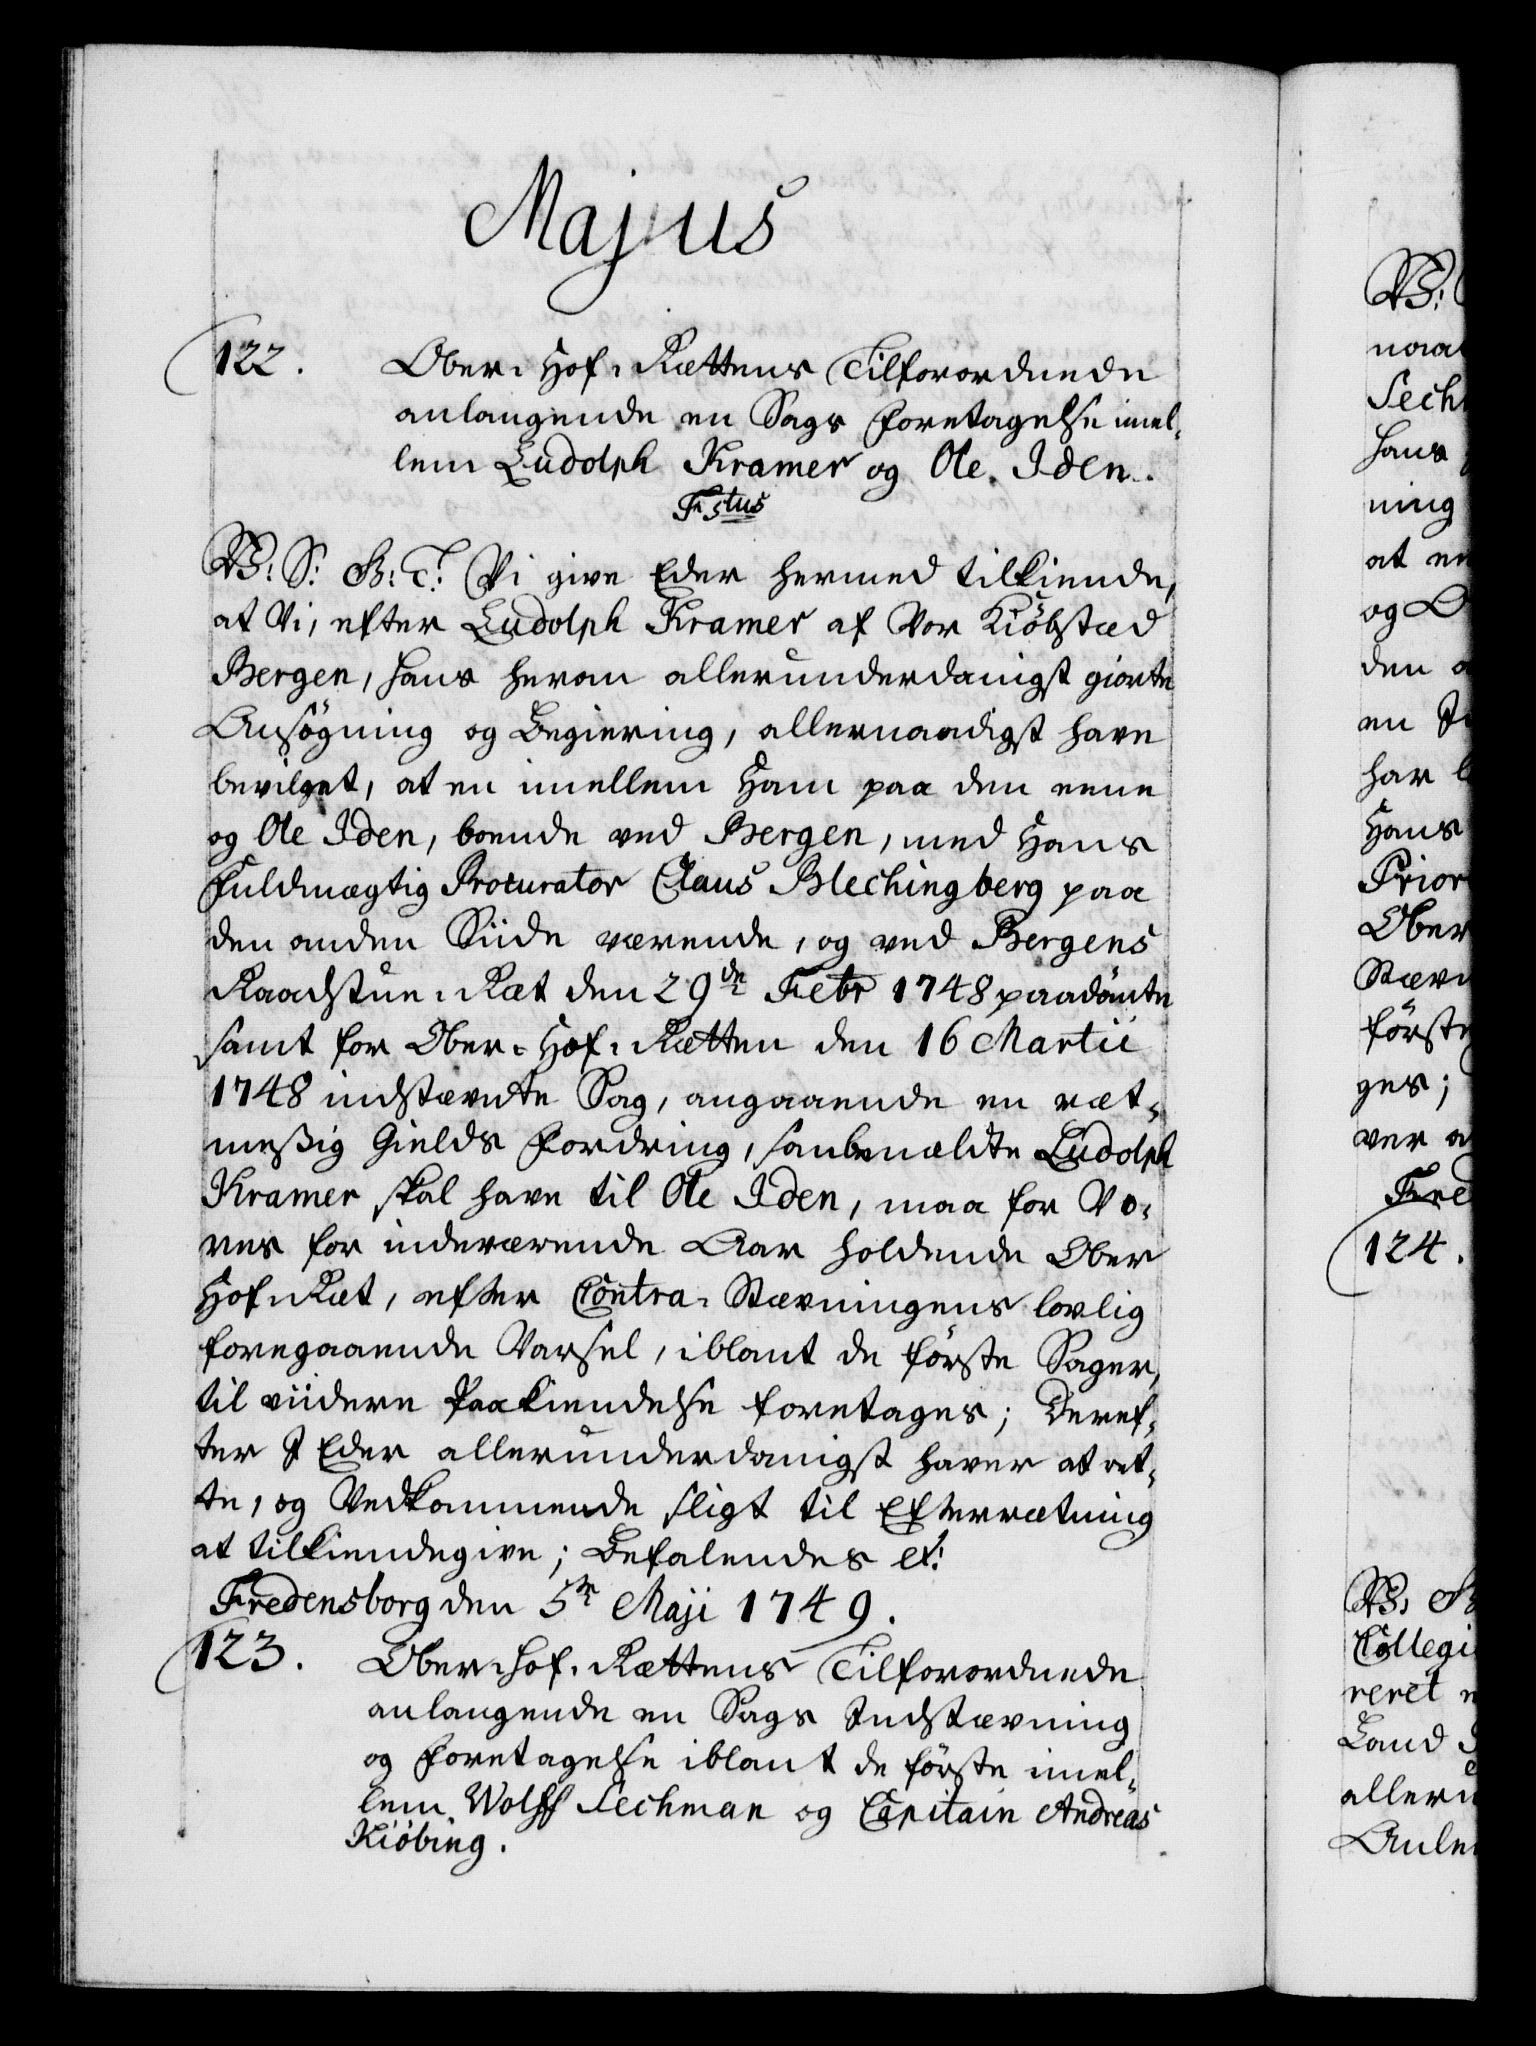 Majus
122. Ober-Hof-Rettens Tilforordnede
anlangende en Sags Foretagelse imel-
lem Ludolph Kramer og Ole Iden.
F. 5tus
V: S: G: T: Vi give Eder hermed tilkiende,
at Vi, efter Ludolph Kramer af Vor Kiöbstæd
Bergen, hans herom allerunderdanigst giorte
Ansögning og Begiering, allernaadigst have
bevilget, at en imellem Ham paa den eene
og Ole Iden, boende ved Bergen, med Hans
Fuldmægtig Procurator Claus Blechingberg paa
den anden Siide værende, og ved Bergens
Raadstue-Ræt den 29de Febr 1748 paadömte
samt for Ober-Hof-Rætten den 16 Martii
1748 indstævnte Sag, angaaende en ræt-
messig Gields Fordring, sanbemeldte Ludolph
Kramer skal have til Ole Iden, maa for Vo-
res for indeværende Aar holdende Ober
Hof-Ræt, efter Contra-Stævningens lovlig
foregaaende Varsel, iblant de förste Sager,
til viidere Paakiendelse foretages; Deref-
ter I Eder allerunderdanigst haver at ret-
te, og Vedkommende sligt til Efterretning
at tilkiendegive; Befalendes etc:
Fredensborg den 5te Maji 1749.
123. Ober-Hof-Rettens Tilforordnede
anlangende en Sags Indstævning
og Foretagelse iblant de förste imel-
lem Wolff Sechman og Capitain Andreas
Kiöbing.
V:
noa
Sech
Hans
ning
at en
og O
den a
en
har
Hans
Prior
Ober
Stævn
förste
ges;
ver a
Fred
124.
V: S
Collegi
reret
Land
alleru
Anle